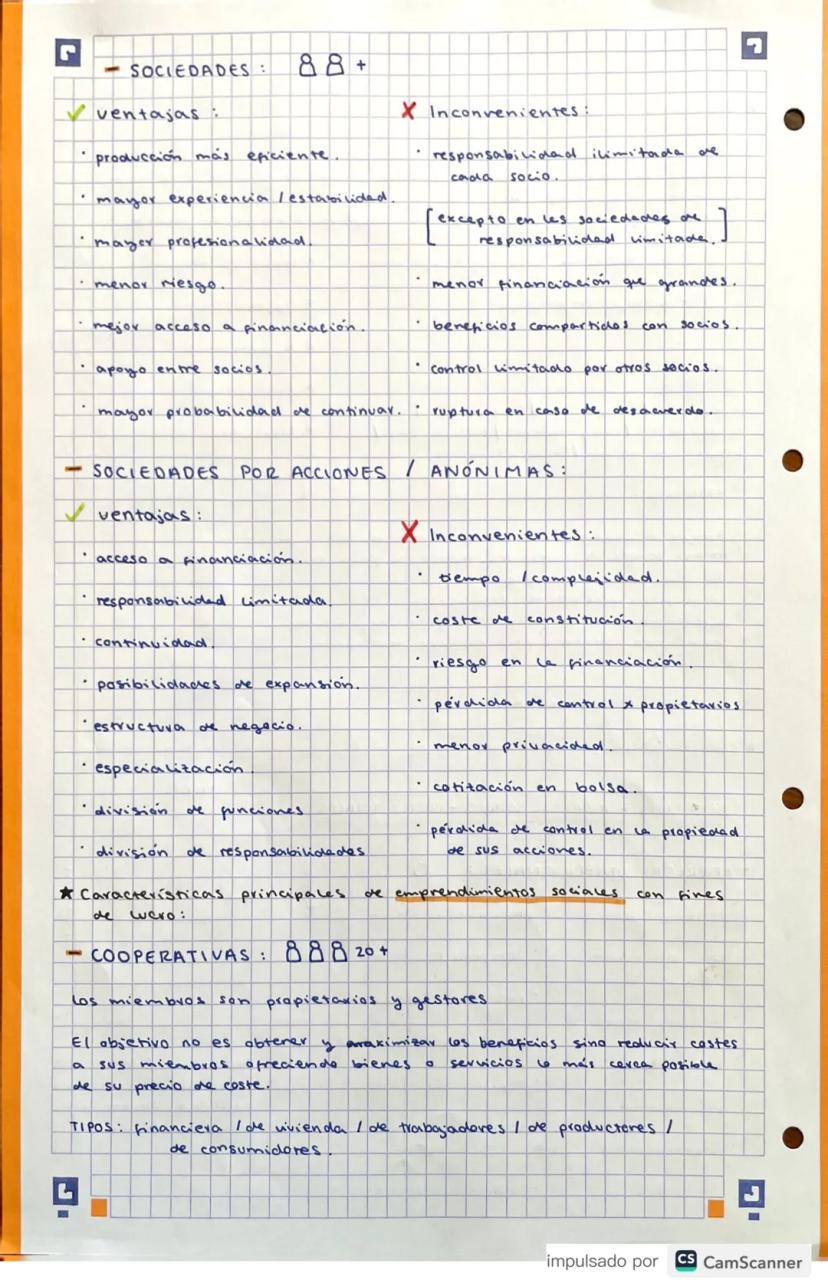 - SOCIEDADES: +
✓ ventajas:
· producción más eficiente.
· mayor experiencia / estabilidad.
· mayor profesionalidad.
· menor riesgo.
· mejor acceso a financiación.
· apoyo entre socios.
· mayor probabilidad de continuar.
X Inconvenientes:
· responsabilidad ilimitada de
cada socio.
[excepto en les sociedades de
responsabilidad limitada.]
· menor financiación que grandes.
· beneficios compartidos con socios.
· control limitado por otros socios.
· ruptura en caso de desacuerdo.
- SOCIEDADES POR ACCIONES / ANÓNIMAS:
✓ ventajas:
· acceso a financiación.
· responsabilidad limitada.
· continuidad.
· posibilidades de expansión.
· estructura de negocio.
· especialización.
· división de funciones
· división de responsabilidades
X Inconvenientes:
· tiempo / complejidad.
· coste de constitución.
· riesgo en la financiación.
· pérdida de control x propietarios
· menor privacidad.
· cotización en bolsa.
· pérdida de control en la propiedad
de sus acciones.
★ Características principales de emprendimientos sociales con fines
de lucro:
- COOPERATIVAS: 20+
Los miembros son propietarios y gestores
El objetivo no es obtener y maximizar los beneficios sino reducir costes
a sus miembros ofreciendo bienes o servicios lo más cerca posible
de su precio de coste.
TIPOS: financiera / de vivienda / de trabajadores / de productores /
de consumidores.
impulsado por CS CamScanner